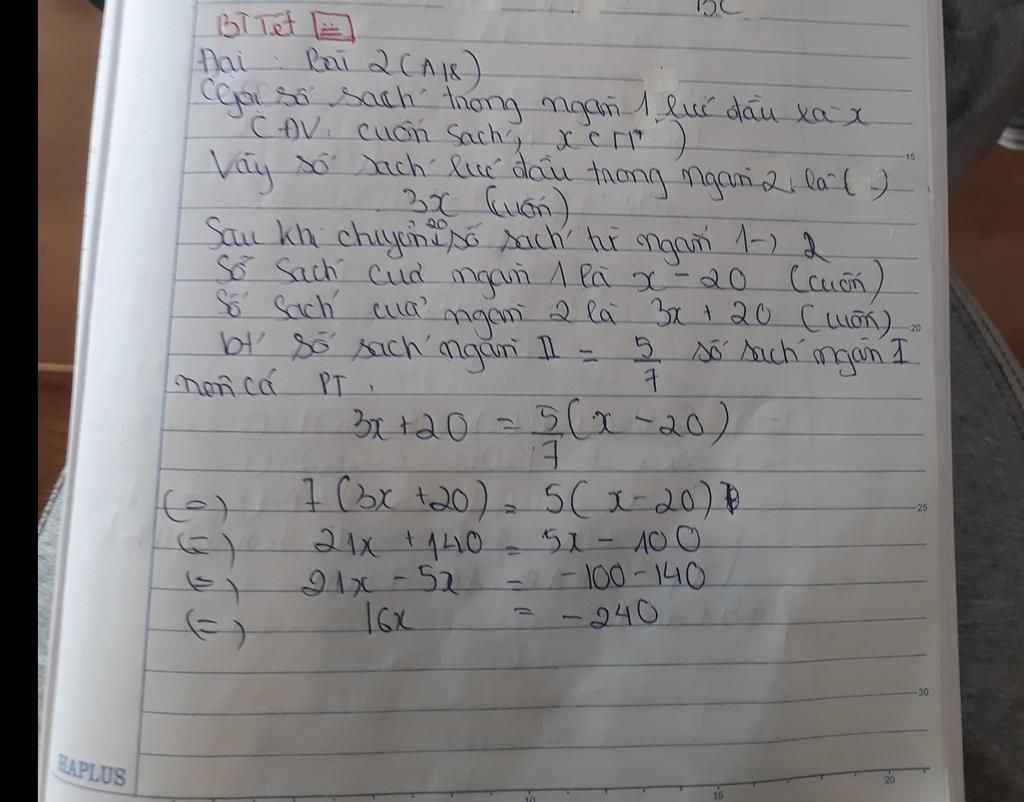 BC
BT Tết
Đại : Bài 2 (A18)
Gọi số sách trong ngăn 1 lúc đầu là x
(ĐV: cuốn sách; x ∈ N*)
Vậy số sách lúc đầu trong ngăn 2 là
3x (cuốn)
Sau khi chuyển 20 số sách từ ngăn 1 -> 2
Số sách của ngăn 1 là x - 20 (cuốn)
Số sách của ngăn 2 là 3x + 20 (cuốn)
bt số sách ngăn II = 5/7 số sách ngăn I
nên có PT.
3x + 20 = 5/7 (x - 20)
(=) 7 (3x + 20) = 5 (x - 20)
(=) 21x + 140 = 5x - 100
(=) 21x - 5x = -100 - 140
(=) 16x = -240
15
20
25
30
HAPLUS
10
15
20